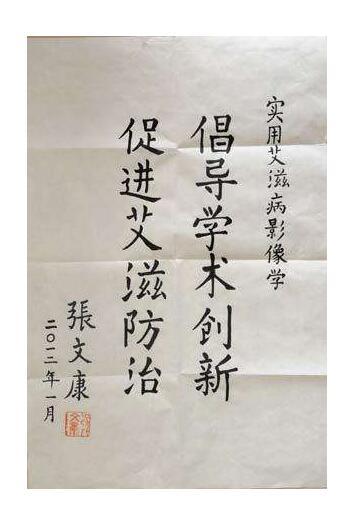 实用艾滋病影像学
倡导学术创新
促进艾滋防治
張文康
二〇一二年一月